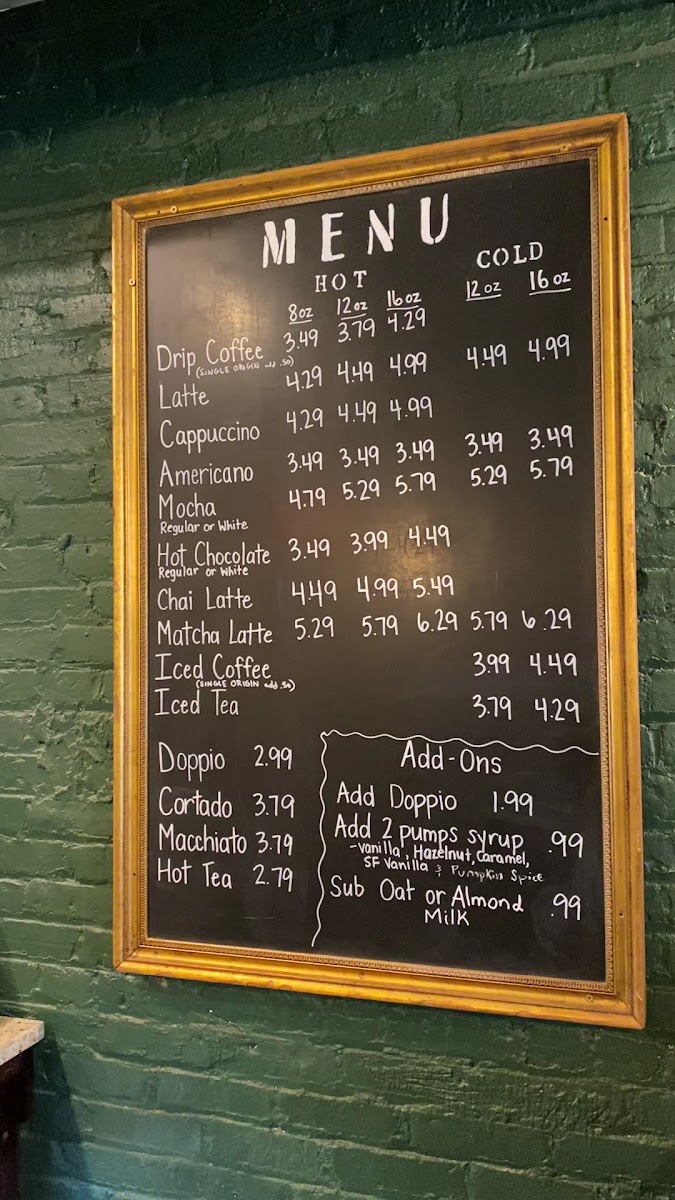 MENU
HOT COLD
8oz 12oz 16oz 12oz 16oz
Drip Coffee 3.49 3.79 4.29
(SINGLE ORIGIN add .50)
Latte 4.29 4.49 4.99 4.49 4.99
Cappuccino 4.29 4.49 4.99
Americano 3.49 3.49 3.49 3.49 3.49
Mocha 4.79 5.29 5.79 5.29 5.79
Regular or White
Hot Chocolate 3.49 3.99 4.49
Regular or White
Chai Latte 4.49 4.99 5.49
Matcha Latte 5.29 5.79 6.29 5.79 6.29
Iced Coffee 3.99 4.49
(SINGLE ORIGIN add .50)
Iced Tea 3.79 4.29
Doppio 2.99
Cortado 3.79
Macchiato 3.79
Hot Tea 2.79
Add-Ons
Add Doppio 1.99
Add 2 pumps syrup .99
-Vanilla, Hazelnut, Caramel,
SF Vanilla & Pumpkin Spice
Sub Oat or Almond .99
Milk